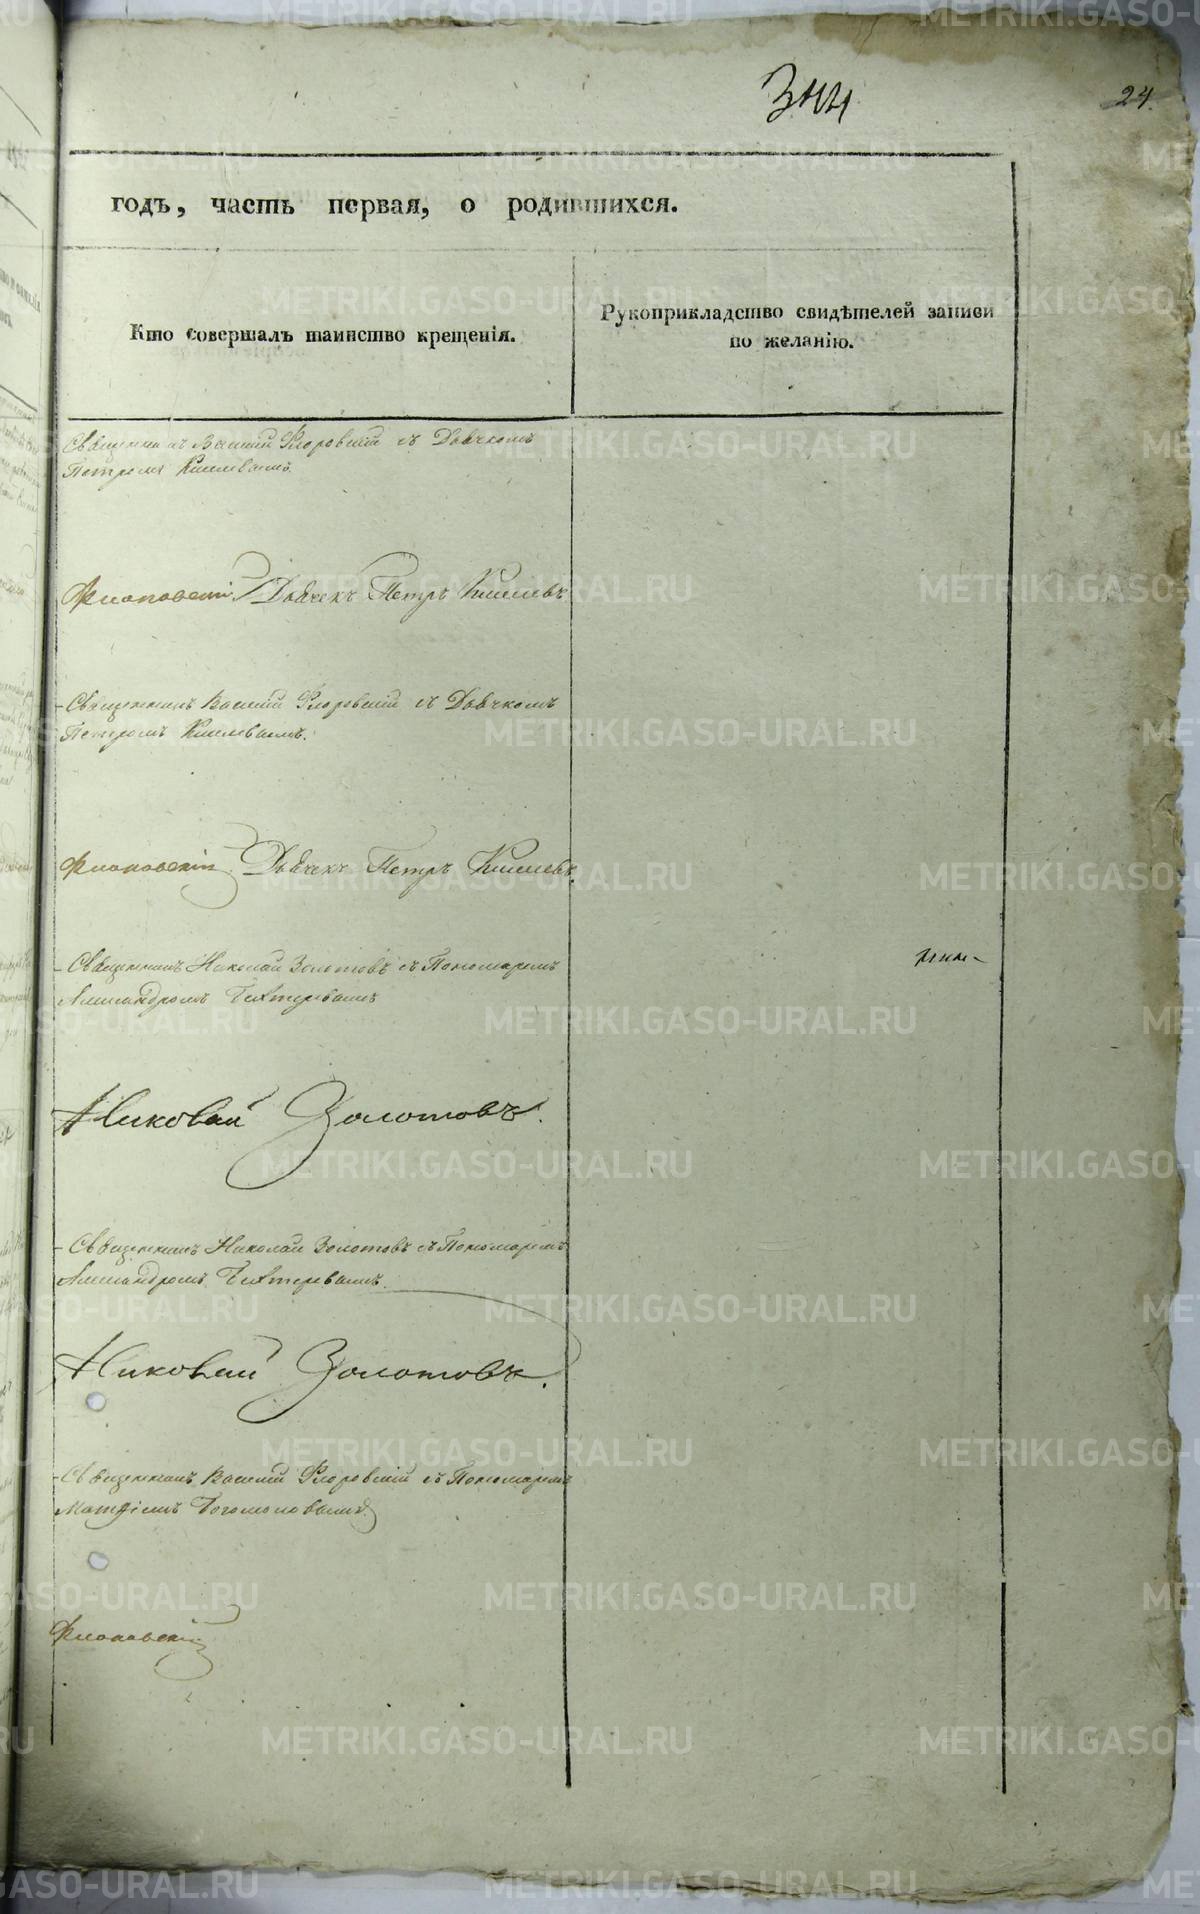 24.
годъ, часть первая, о родившихся.
Кто совершалъ таинство крещенія.
Рукоприкладство свидѣтелей записи
по желанію.
Священникъ Василій Флоровскій съ Дьячкомъ
Петромъ Киселевымъ.
Дьячекъ Петръ Киселевъ
Священникъ Василій Флоровскій съ Дьячкомъ
Петромъ Киселевымъ.
Дьячекъ Петръ Киселевъ.
Священникъ Николай Золотовъ съ Пономаремъ
Александромъ Бихтеревымъ
Николай Золотовъ.
Священникъ Николай Золотовъ съ Пономаремъ
Александромъ Бихтеревымъ.
Николай Золотовъ.
Священникъ Василій Флоровскій съ Пономаремъ
Матфіемъ Богомоловымъ
METRIKI.GASO-URAL.RU